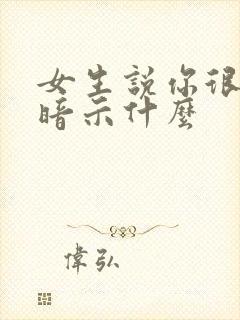 女生説你很
暗示什麼
偉弘